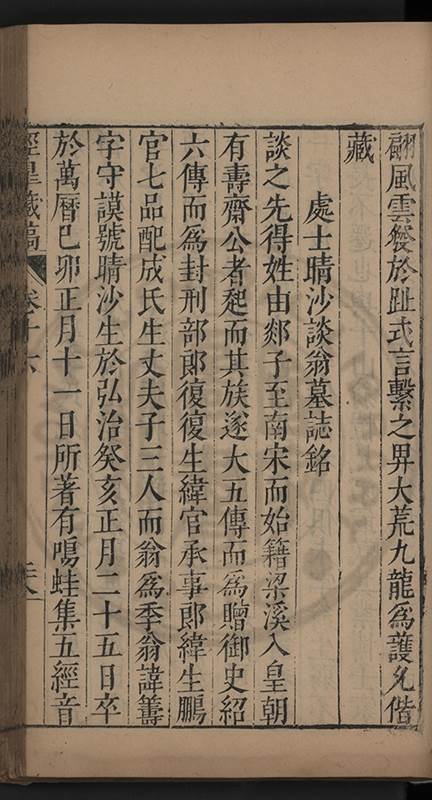 翩風雲發於趾式言繫之畀大荒九龍為護允偕
藏
處士晴沙談翁墓誌銘
談之先得姓由郯子至南宋而始籍梁溪入皇朝
有壽齋公者起而其族遂大五傳而為贈御史紹
六傳而為封刑部郎復復生緯官承事郎緯生鵬
官七品配成氏生丈夫子三人而翁為季翁諱籌
字守謨號晴沙生於弘治癸亥正月二十五日卒
於萬曆己卯正月十一日所著有鳴蛙集五經音
經皐藏稿 卷十六 二八